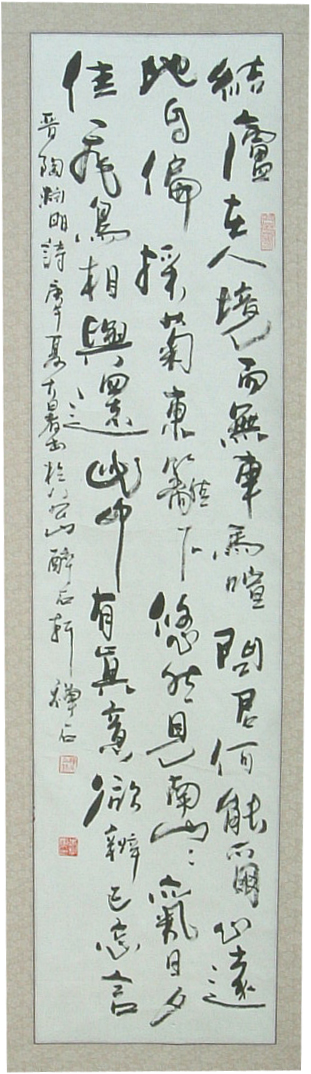 結廬在人境而無車馬喧問君何能爾心遠
地自偏採菊東籬下悠然見南山山氣日夕
佳飛鳥相與還此中有真意欲辨已忘言
晉陶淵明詩庚午夏大暑書於山醉石軒禪石